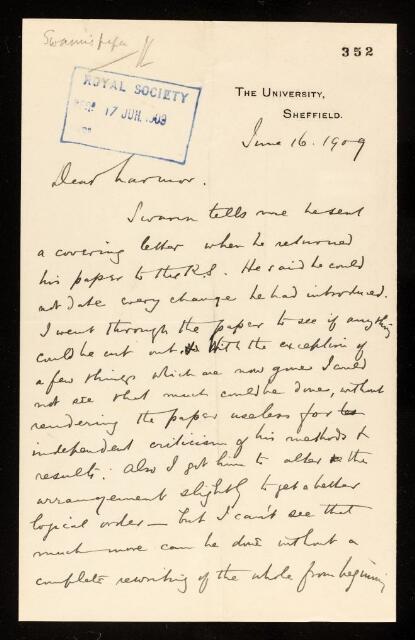 Swann's paper
352
ROYAL SOCIETY
17 JUN. 1909
THE UNIVERSITY,
SHEFFIELD.
June 16. 1909
Dear Larmor.
Swann tells me he sent
a covering letter when he returned
his paper to the R.S. He said he could
not date every change he had introduced.
I went through the paper to see if anything
could be cut out. With the exception of
a few things which are now gone I could
not see that much could be done, without
rendering the paper useless for
independent criticism of his methods &
results. Also I got him to alter the
arrangement slightly to get a better
logical order – but I can't see that
much more can be done without a
complete rewriting of the whole from beginning